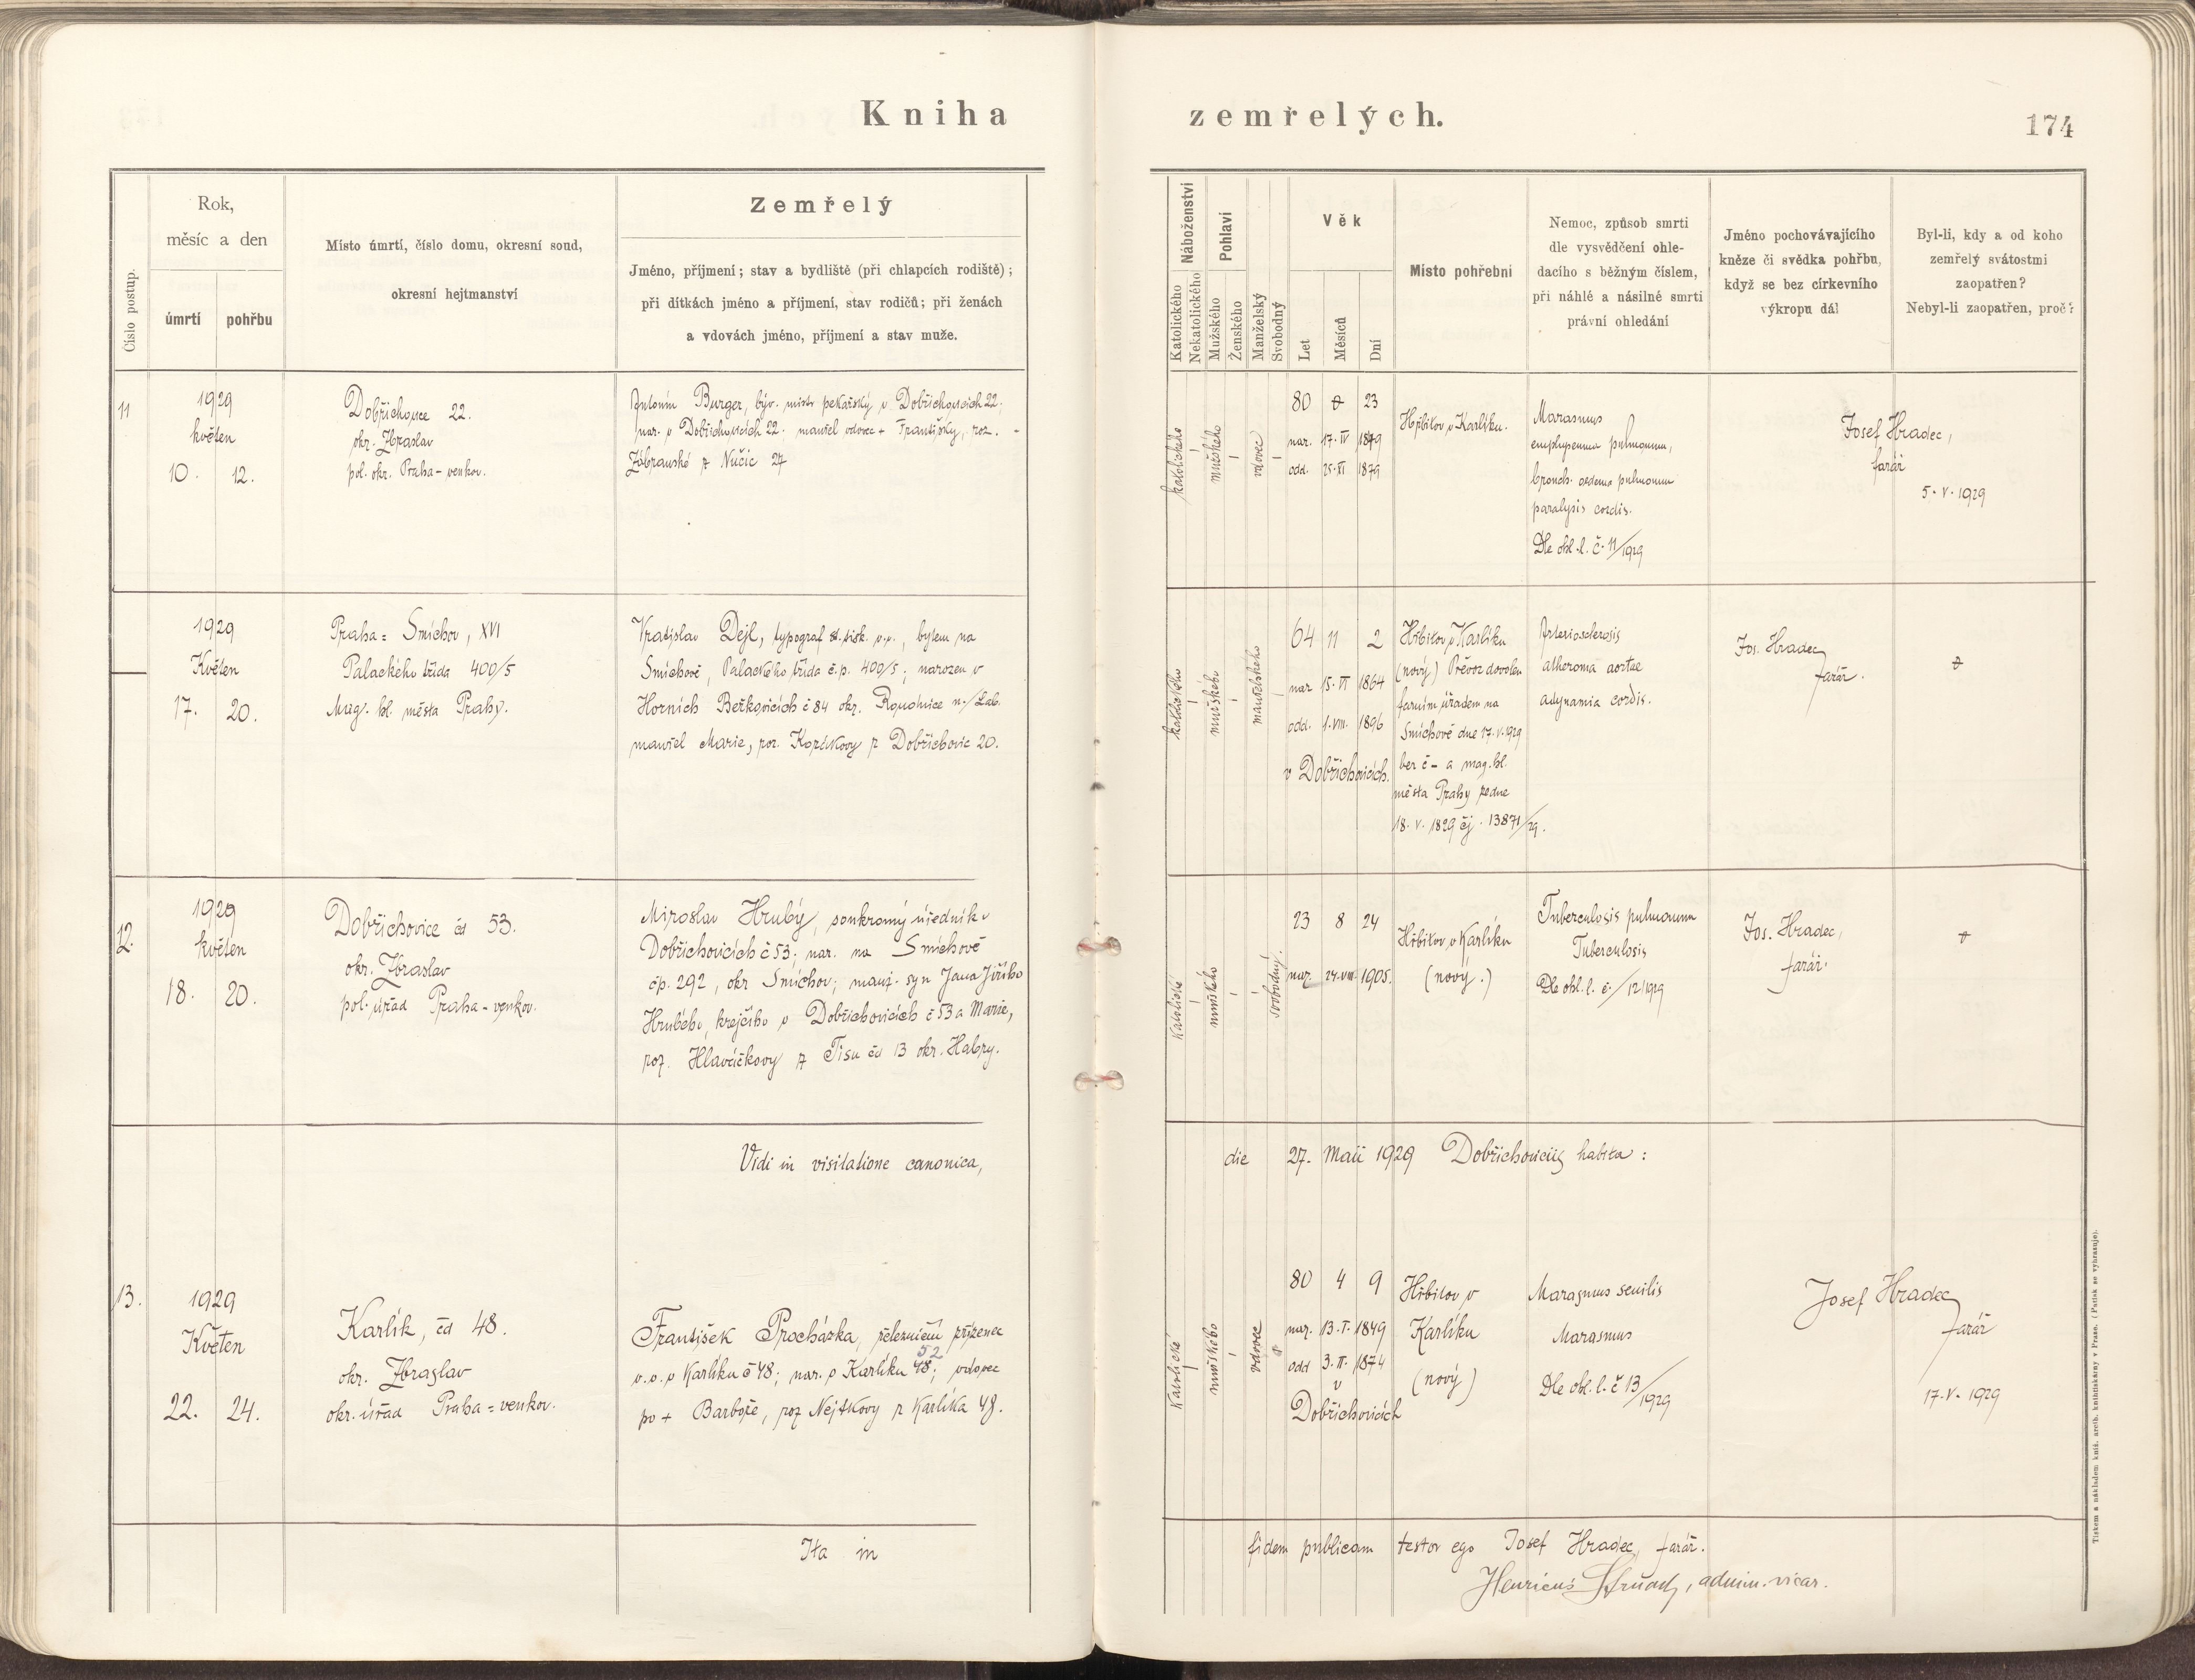 Kniha zemřelých.
174
Číslo postup.
Rok,
měsíc a den
úmrtí
pohřbu
Místo úmrtí, číslo domu, okresní soud,
okresní hejtmanství
Zemřelý
Jméno, příjmení; stav a bydliště (při chlapcích rodiště);
při dítkách jméno a příjmení, stav rodičů; při ženách
a vdovách jméno, příjmení a stav muže.
Náboženství
Katolického
Nekatolického
Pohlaví
Mužského
Ženského
Manželský
Svobodný
Věk
Let
Měsíců
Dní
Místo pohřební
Nemoc, způsob smrti
dle vysvědčení ohle-
dacího s běžným číslem,
při náhlé a násilné smrti
právní ohledání
Jméno pochovávajícího
kněze či svědka pohřbu,
když se bez církevního
výkropu dál
Byl-li, kdy a od koho
zemřelý svátostmi
zaopatřen?
Nebyl-li zaopatřen, proč?
11
1929
květen
10. 12.
Dobřichovice 22.
okr. Zbraslav
pol. okr. Praha-venkov.
Antonín Burger, býv. mistr pekařský v Dobřichovicích 22;
nar. v Dobřichovicích 22. manžel vdovec + Františky, roz.
Zábranské z Nučic 27
katolického
mužského
vdovec
80 0 23
nar. 17. IV 1849
odd. 25. XI 1879
Hřbitov v Karlíku.
Marasmus
emphysema pulmonum,
bronch. oedema pulmonum
paralysis cordis.
Dle ohl. l. č. 11/1929
Josef Hradec,
farář
5. V. 1929
1929
Květen
17. 20.
Praha = Smíchov, XVI
Palackého třída 400/5
Mag. hl. města Prahy.
Vratislav Dejl, typograf st. tisk. v.v., bytem na
Smíchově, Palackého třída č.p. 400/5; narozen v
Horních Beřkovicích č 84 okr. Roudnice n./Lab.
manžel Marie, roz. Kopřivovy z Dobřichovic 20.
katolického
mužského
manželského
64 11 2
nar 15. VI 1864
odd. 1. VIII. 1896
v Dobřichovicích.
Hřbitov v Karlíku
(nový) Převoz dovolen
farním úřadem na
Smíchově dne 17. V. 1929
bez č - a mag. hl.
města Prahy ze dne
18. V. 1829 čj. 13871/29.
Arteriosclerosis
atheroma aortae
adynamia cordis.
Jos. Hradec,
farář.
12.
1929
květen
18. 20.
Dobřichovice čd 53.
okr. Zbraslav
pol. úřad Praha - venkov.
Miroslav Hrubý, soukromý úředník v
Dobřichovicích č 53; nar. na Smíchově
čp. 292, okr Smíchov; manž. syn Jana Jiřího
Hrubého, krejčího v Dobřichovicích č 53 a Marie,
roz. Hlaváčkovy z Tisu čd 13 okr. Habry.
katolické
mužského
svobodný.
23 8 24
nar. 24. VIII. 1905.
Hřbitov v Karlíku
(nový.)
Tuberculosis pulmonum
Tuberculosis
Dle ohl. l. č. /12/1929
Jos. Hradec,
farář.
Vidi in visitatione canonica, die 27. Maii 1929 Dobřichoviciis habita:
13.
1929
Květen
22. 24.
Karlík, čd 48.
okr. Zbraslav
okr. úřad Praha = venkov.
František Procházka, železniční zřízenec
52
v.v. v Karlíku č 48; nar. v Karlíku 48; vdovec
po + Barboře, roz Nejtkovy z Karlíka 48.
katolické
mužského
vdovec
80 4 9
nar. 13. I. 1849
odd 3. II. 1874
v
Dobřichovicích
Hřbitov v
Karlíku
(nový)
Marasmus senilis
Marasmus
Dle ohl. l. č 13/1929
Josef Hradec
farář
17. V. 1929
Ita in fidem publicam testor ego Josef Hradec, farář.
Henricus, admin. vicar.
Tiskem a nákladem kníž. arcib. knihtiskárny v Praze. (Patisk se vyhrazuje).